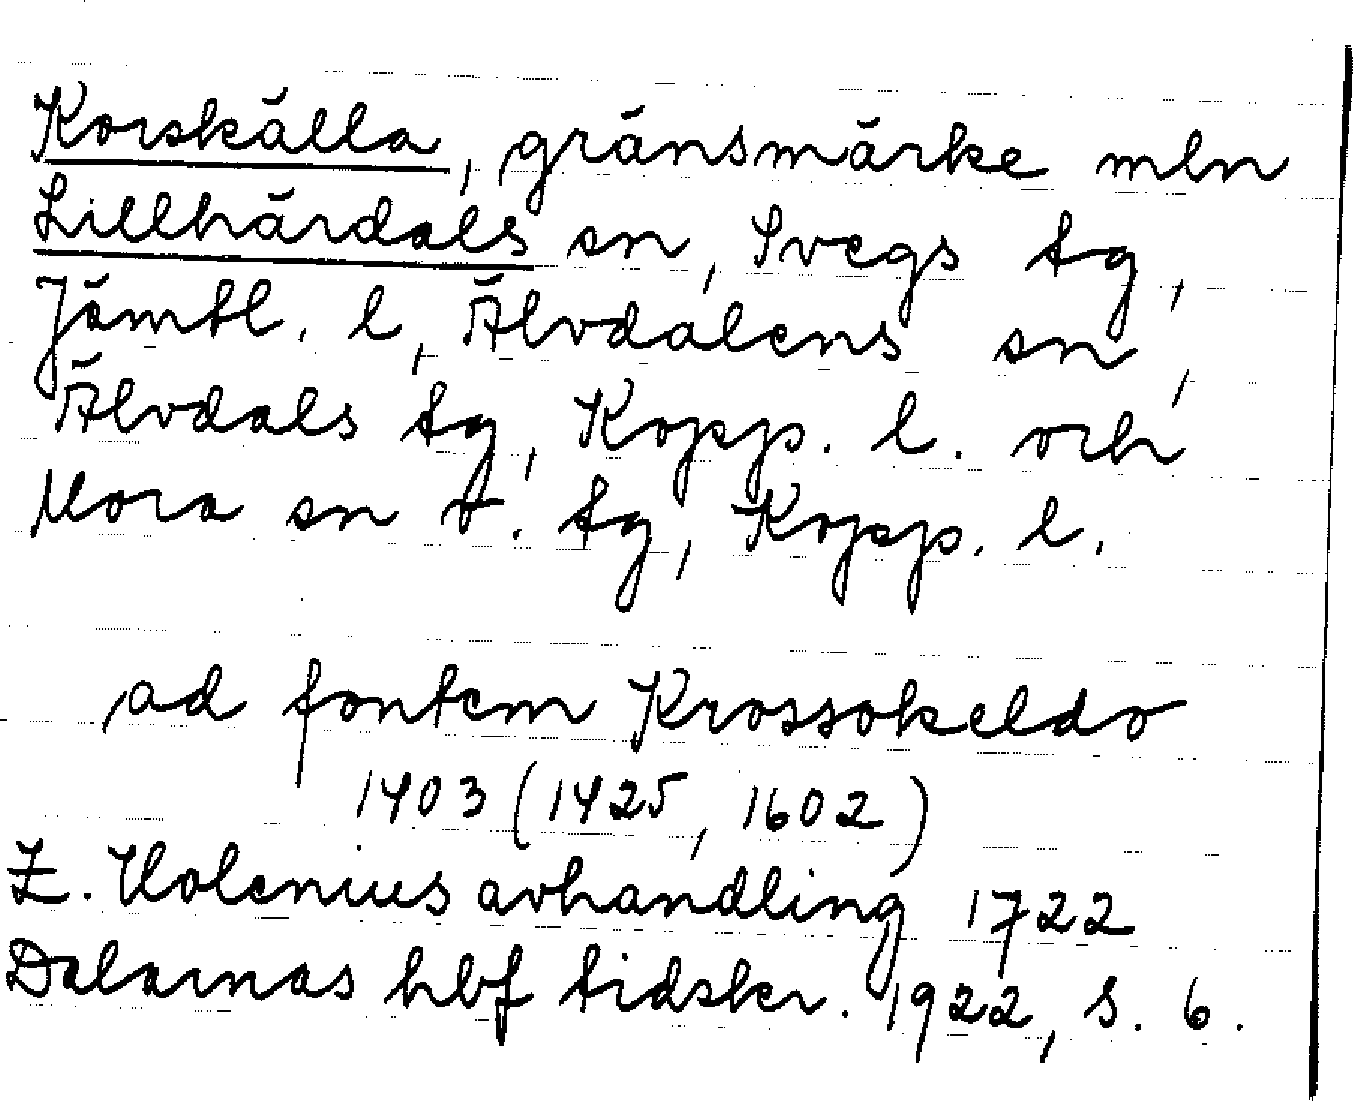 Korskälla, gränsmärke mln
Lillhärdals sn, Svegs tg,
Jämtl. l, Älvdalens sn,
Älvdals tg, Kopp. l. och
Mora sn o. tg, Kopp. l.
ad fontem Krossokeldo
1403 (1425, 1602)
Z. Holenius avhandling 1722
Dalarnas hbf tidskr. 1922, S. 6.